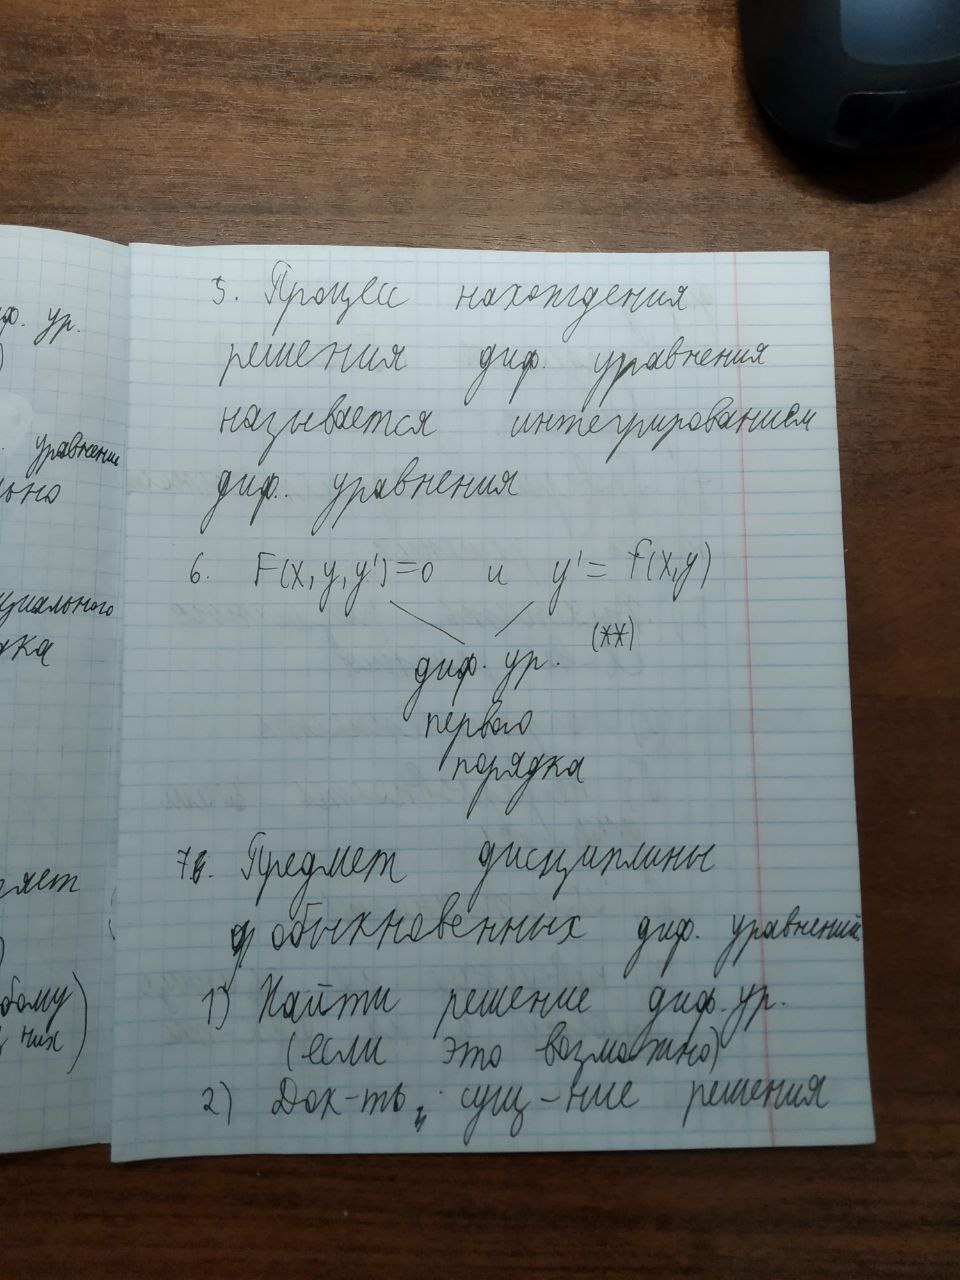 иф. ур.
)
. уравнение
льно
циального
дка
ляет
)
бому
них)
5. Процесс нахождения
решения диф. уравнения
называется интегрированием
диф. уравнения
6. F(x, y, y')=0 и y'= f(x,y)
(**)
диф. ур.
первого
порядка
7. Предмет дисциплины
обыкновенных диф. уравнений
1) Найти решение диф. ур.
(если это возможно)
2) Док-ть сущ-ние решения